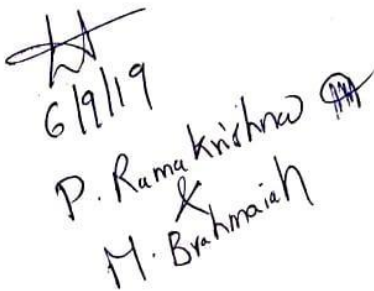 6/9/19
P. Ramakrishna
&
M. Brahmaiah